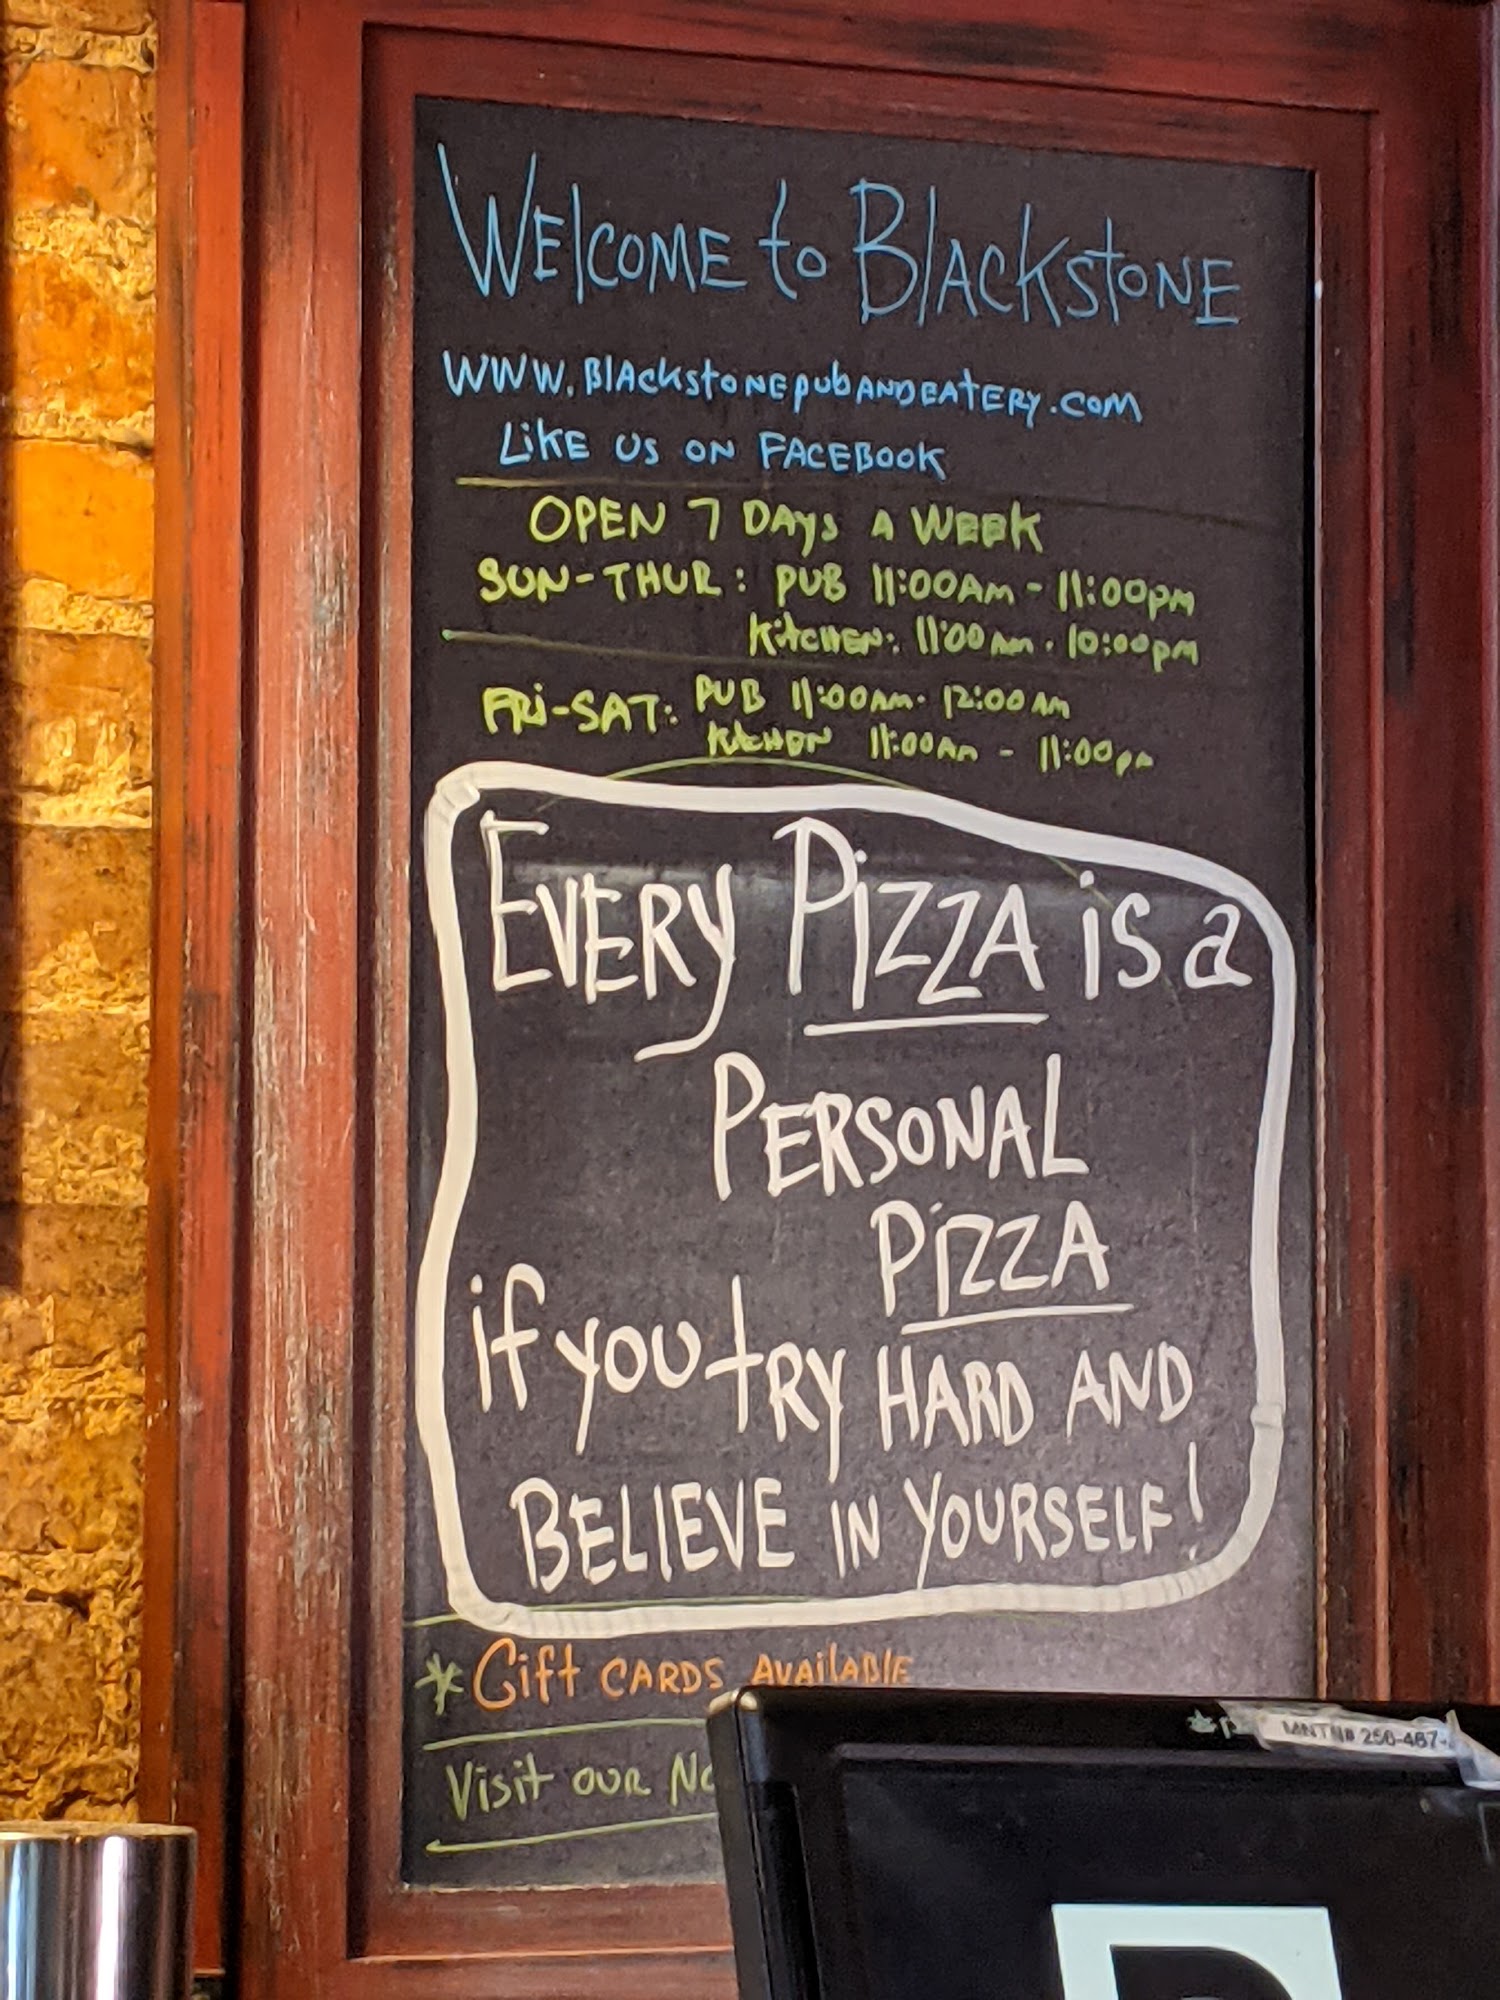 WELCOME to BLACKSTONE
WWW.BLACKSTONEPUBANDEATERY.COM
LIKE US ON FACEBOOK
OPEN 7 DAYS A WEEK
SUN-THUR: PUB 11:00AM - 11:00pm
KITCHEN: 11:00am - 10:00pm
FRI-SAT: PUB 11:00AM - 12:00AM
KITCHEN 11:00Am - 11:00pm
EVERY PIZZA is a
PERSONAL
PIZZA
if you tRY HARD AND
BELIEVE IN YOURSELF!
*Gift CARDS AVAILABLE
Visit OUR
MNTN# 256-467-